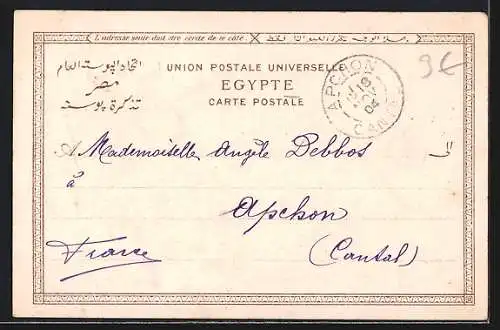 L'adresse seule doit être écrite de ce côté.
UNION POSTALE UNIVERSELLE
اتحاد البوستة العام
EGYPTE
مصر
CARTE POSTALE
تذكرة بوستة
APCHON
19
NOV
04
CANTAL
9€
A Mademoiselle Angèle Debbos
à
Apchon
France
(Cantal)